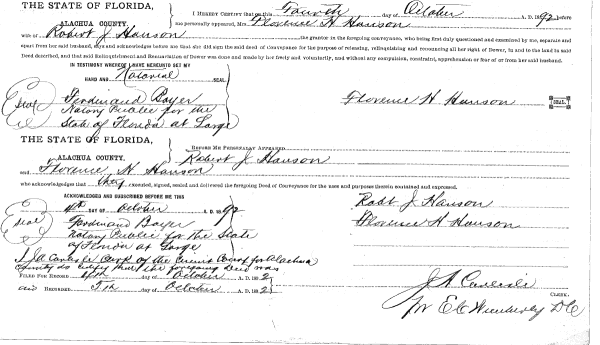 THE STATE OF FLORIDA,
I HEREBY CERTIFY that on this Fourth day of October A. D. 1892 before
ALACHUA COUNTY.
me personally appeared, Mrs. Florence H Hanson
wife of Robert J. Hanson the grantor in the foregoing conveyance, who being first duly questioned and examined by me, separate and
apart from her said husband, say and acknowledges before me that she did sign the said deed of conveyance for the purpose of releasing, relinquishing and renouncing all her right of Dower, in and to the land in said
Deed described, and that said Relinquishment and Renunciation of Dower was done and made by her freely and voluntarily, and without any compulsion, constraint, apprehension or fear of or from her said husband.
IN TESTIMONY WHEREOF I HAVE HEREUNTO SET MY
HAND AND Notarial SEAL
Seal Ferdinand Bayer
Notary Public for the
State of Florida at Large
Florence H Hanson SEAL.
THE STATE OF FLORIDA,
ALACHUA COUNTY.
BEFORE ME PERSONALLY APPEARED
Robert J. Hanson
and Florence H. Hanson
who acknowledges that they executed, signed, sealed and delivered the foregoing Deed of Conveyance for the uses and purposes therein contained and expressed.
ACKNOWLEDGED AND SUBSCRIBED BEFORE ME THIS
4th DAY OF October A. D. 1892
Robt J. Hanson
Florence H Hanson
Seal Ferdinand Bayer
Notary Public for the State
of Florida at Large
I J A Carlisle Clerk of the Circuit Court for Alachua
County do certify that the foregoing Deed was
FILED FOR RECORD day of October A. D. 1892
and RECORDED 5th day of October A. D. 1892
J A Carlisle
CLERK.
Pr E C Wimberly D C